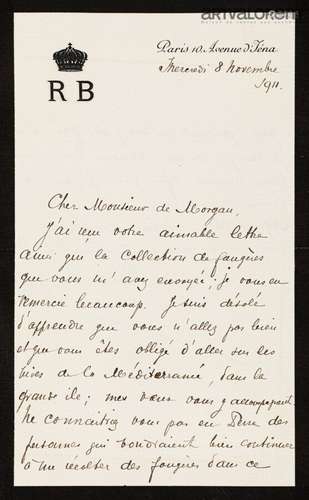 ARTVALOREM
RB
Paris 10. Avenue d'Iéna
Mercredi 8 Novembre
1911.
Cher Monsieur de Morgan,
J'ai reçu votre aimable lettre
ainsi que la collection de fougères
que vous m'avez envoyée; je vous en
remercie beaucoup. Je suis désolé
d'apprendre que vous n'allez pas bien
et que vous êtes obligé d'aller sur les
rives de la Méditerranée, dans la
grande île; mes vœux vous y accompagnent
Ne connaitriez vous pas en Perse des
personnes qui voudraient bien continuer
à me récolter des fougères dans ce